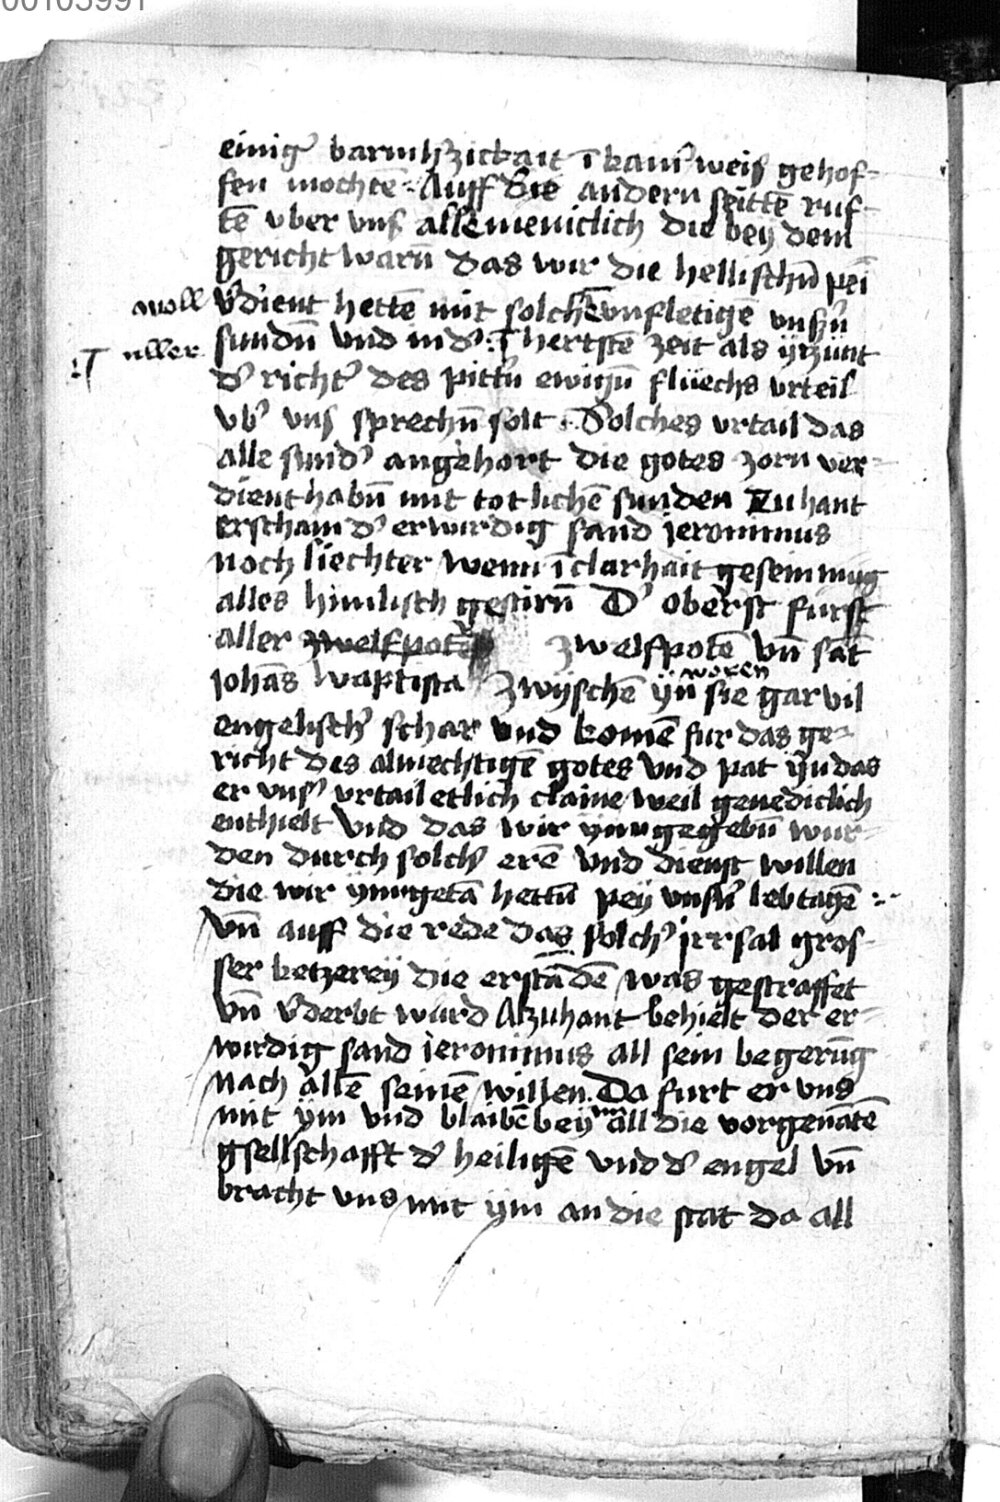 00103991
einig̛ barmh̛zickait ī kaim̛ weiß gehof-
fen mochtē · Auff die andern seittē ruf-
tē vber vnß alle meniclich die bey dem
gericht warn̄ das wir die hellischn̄ pei
woll v̛dient hettē mit solchē vnfletigē vnsn̛
uller sundn̄ vnd in d̛ ī hertstē zeit als ÿtzünt
d̛ richt̛ des pittn̛ ewign̄ flüechs vrteil
vb̛ vnß sprechn̄ solt · Solches vrtail das
alle sund̛ angehort die gotes zorn ver-
dient habn̄ mit totlichē sunden Zuhant
Erschain d̛ erwirdig sand jeronimus
noch liechter wenn ī clarhait
alles himlisch gestirn̄ D̛ oberst fürst
aller zwelfpotē zwelfpotē vn̄ sāt
johās waptista Zwÿschē ÿn̄ woren sie gar vil
engelisch̛ schar vnd komē fur das ge-
richt des almechtigē gotes vnd pat ÿn das
er vns̛ vrtail etlich claine weil genediclich
enthielt Vnd das wir ÿm gegebn̄ wur-
den durch solch̛ erē vnd dienst willen
die wir ÿm getā hettn̄ peÿ vnsn̛ lebtagē :-
Vn̄ auff die rede das solch̛ jrrsal gros-
ser ketzereÿ die erstādē was gestraffet
vn̄ v̛derbt wurd Alzuhant behielt der er-
wirdig sand jeronimus all sein begerūg
nach allē seinē willen. Da furt er vns
mit ÿm vnd blaibē beÿ ÿm all die vorgenātē
gsellschafft d̛ heiligē vnd d̛ engel vn̄
bracht vns mit ÿm an die stat da all